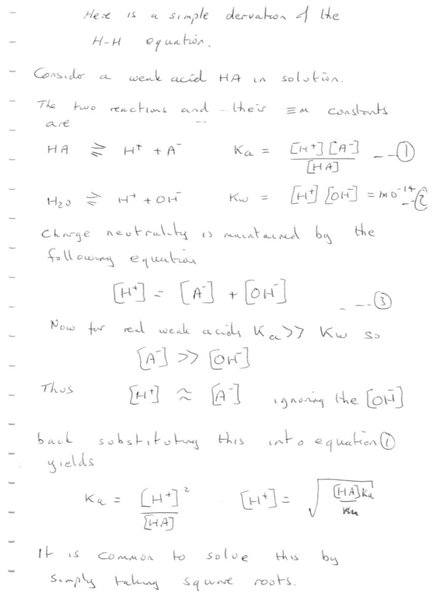 Here is a simple dervation of the
H-H equation.
Consider a weak acid HA in solution.
The two reactions and their ≡m constants
are
HA ⇌ H⁺ + A⁻ Ka = [H⁺][A⁻] / [HA] --①
H₂O ⇌ H⁺ + OH⁻ Kw = [H⁺][OH⁻] = 10⁻¹⁴ --②
Charge neutrality is maintained by the
following equation
[H⁺] = [A⁻] + [OH⁻] --③
Now for real weak acids Ka >> Kw so
[A⁻] >> [OH⁻]
Thus [H⁺] ≈ [A⁻] ignoring the [OH⁻]
back substituting this into equation ①
yields
Ka = [H⁺]² / [HA] [H⁺] = √([HA]Ka /
It is common to solve this by
simply taking square roots.